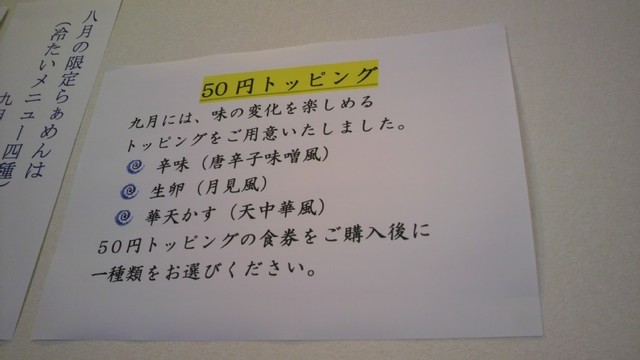 八月の限定らぁめんは
(冷たいメニュー四種)
50円トッピング
九月には、味の変化を楽しめる
トッピングをご用意いたしました。
辛味(唐辛子味噌風)
生卵(月見風)
華天かす(天中華風)
50円トッピングの食券をご購入後に
一種類をお選びください。